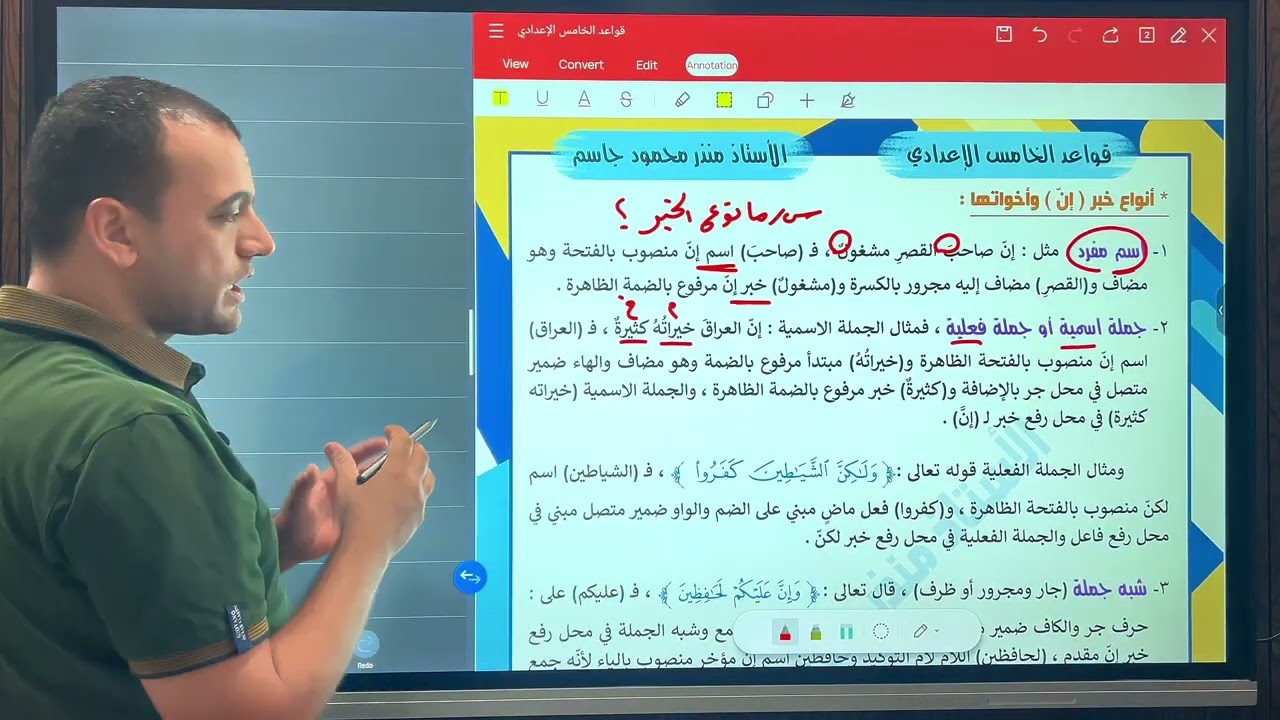 قواعد الخامس الإعدادي
View Convert Edit Annotation
2
T U A S
قواعد الخامس الإعدادي
الأستاذ منذر محمود جاسم
* أنواع خبر ( إنّ ) وأخواتها :
س/ ما نوع الخبر ؟
١- اسم مفرد مثل : إنّ صاحبَ القصرِ مشغولٌ ، فـ (صاحبَ) اسم إنّ منصوب بالفتحة وهو
مضاف و(القصرِ) مضاف إليه مجرور بالكسرة و(مشغولٌ) خبر إنّ مرفوع بالضمة الظاهرة .
م خ
٢- جملة اسمية أو جملة فعلية ، فمثال الجملة الاسمية : إنّ العراقَ خيراتُهُ كثيرةٌ ، فـ (العراق)
اسم إنّ منصوب بالفتحة الظاهرة و(خيراتُهُ) مبتدأ مرفوع بالضمة وهو مضاف والهاء ضمير
متصل في محل جر بالإضافة و(كثيرةٌ) خبر مرفوع بالضمة الظاهرة ، والجملة الاسمية (خيراته
كثيرة) في محل رفع خبر لـ (إنَّ) .
ومثال الجملة الفعلية قوله تعالى :﴿ وَلَٰكِنَّ ٱلشَّيَٰطِينَ كَفَرُوا۟ ﴾ ، فـ (الشياطين) اسم
لكنّ منصوب بالفتحة الظاهرة ، و(كفروا) فعل ماضٍ مبني على الضم والواو ضمير متصل مبني في
محل رفع فاعل والجملة الفعلية في محل رفع خبر لكنّ .
٣- شبه جملة (جار ومجرور أو ظرف) ، قال تعالى :﴿ وَإِنَّ عَلَيْكُمْ لَحَٰفِظِينَ ﴾ ، فـ (عليكم) على :
حرف جر والكاف ضمير مع وشبه الجملة في محل رفع
خبر إنّ مقدم ، (لحافظين) اللام لام التوكيد وحافظين اسم إن مؤخر منصوب بالياء لأنّه جمع
الأستاذ منذر
Redo